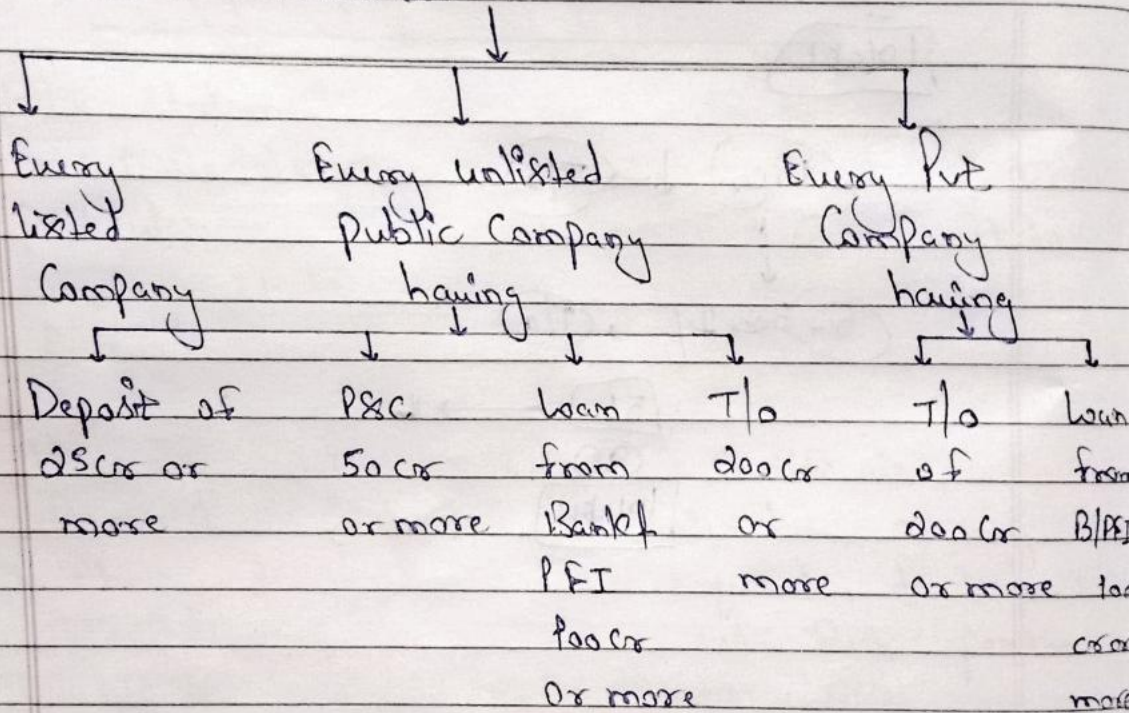 Every
listed
Company
Every unlisted
public Company
having
Every Pvt
Company
having
Deposit of
25 Cr or
more
PSC
50 Cr
or more
Loan
from
Bank/
PFI
100 Cr
or more
T/o
200 Cr
or
more
T/o
of
200 Cr
or more
Loan
from
B/PFI
100
cr or
more